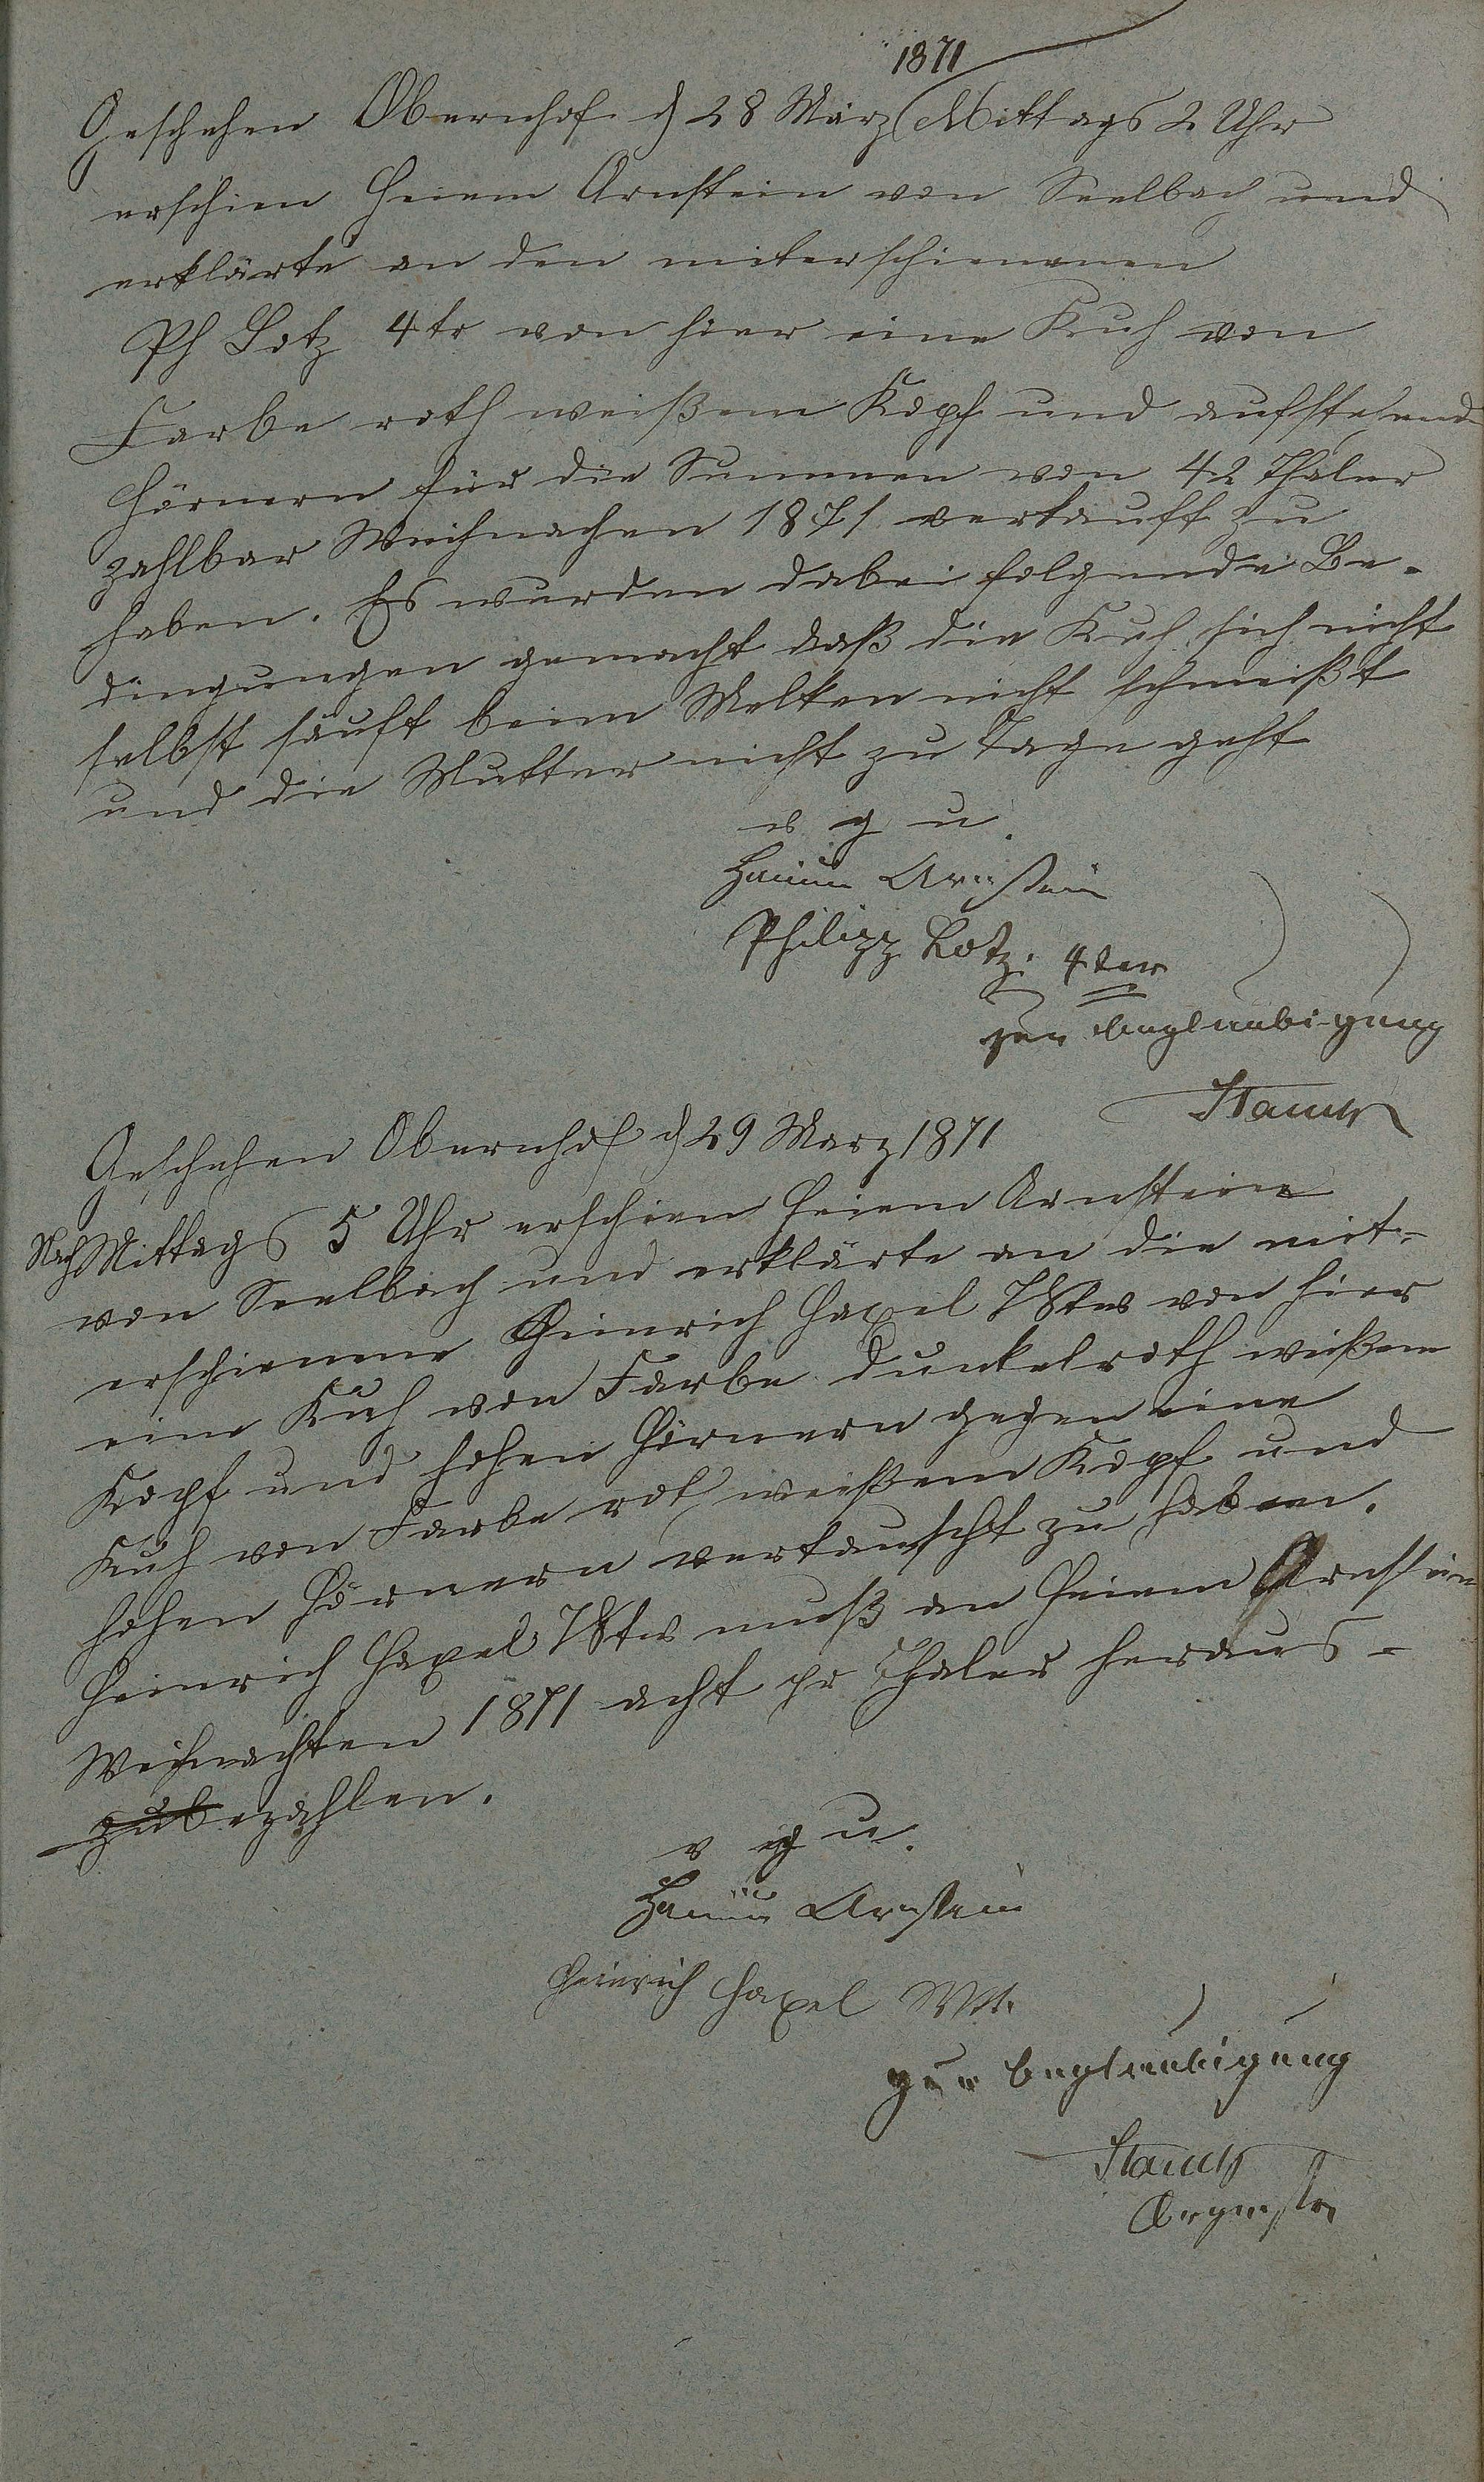 1871
Geschehen Obernhof d 28 März Mittags 2 Uhr
erschien Heium Arnstein von Seelbach und
erklärte an den miterschienenen
Ph Lotz 4tr von hier eine Kuh von
Farbe roth weißem Kopf und aufstehend
Hörnern für die Summen von 42 Thaler
zahlbar Weihnachen 1871 verkauft zu
haben. Es wurden dabei folgende Be-
dingungen gemacht daß die Kuh sich nicht
selbst säuft beim Melken nicht schmeißt
und die Mutter nicht zu Tage geht
v g u.
Arnstein
Philipp Lotz. 4ter
zur Beglaubigung
Geschehen Obernhof d 29 Marz 1871
NachMittags 5 Uhr erschien Heium Arnstein
von Seelbach und erklärte an die mit-
erschienene Heinrich Haxel von hier
eine Kuh von Farbe dunkelroth weißem
Kopf und hohen Hörnern gegen eine
Kuh von Farbe roth weißem Kopf und
hohen Hörnern vertauscht zu haben.
Heinrich Haxel muß an Heium Arnstein
Weihnachten 1871 acht pr Thaler heraus-
zubezahlen.
v g u.
Arnstein
Heinrich Haxel Wtt.
zur Beglaubigung